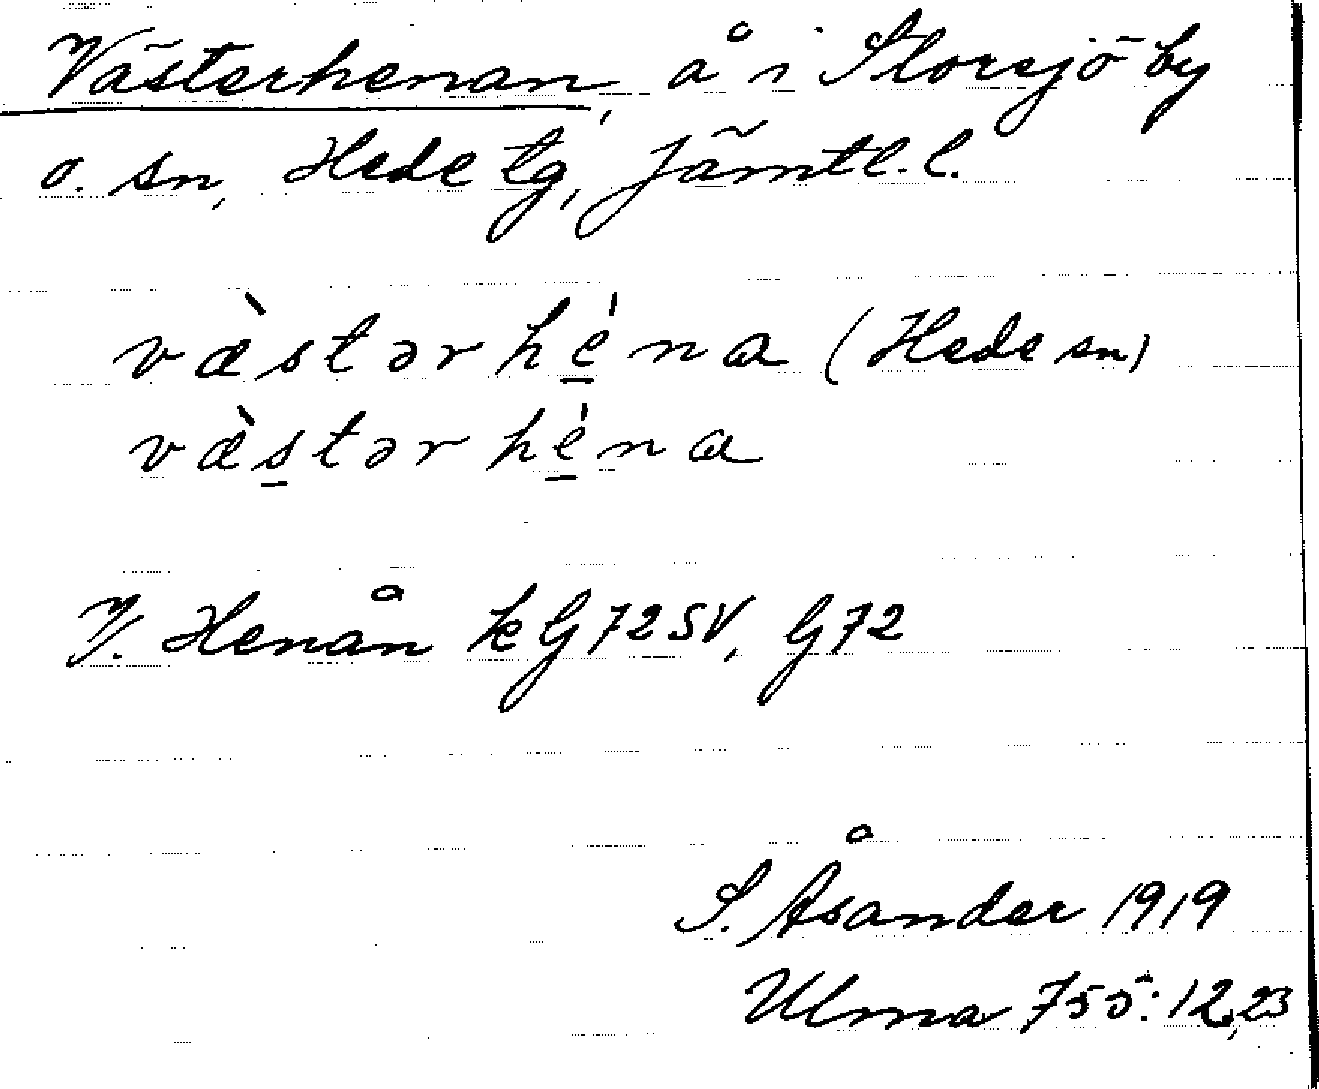 Västerhenan, å i Storsjö by
o. sn, Hede tg, Jämtl. l.
væ̀stər hé̱na (Hede sn)
væ̀s̱tər hé̱na
V. Henån kG 72 SV, G 72
S. Åsander 1919
Ulma 755:12,23